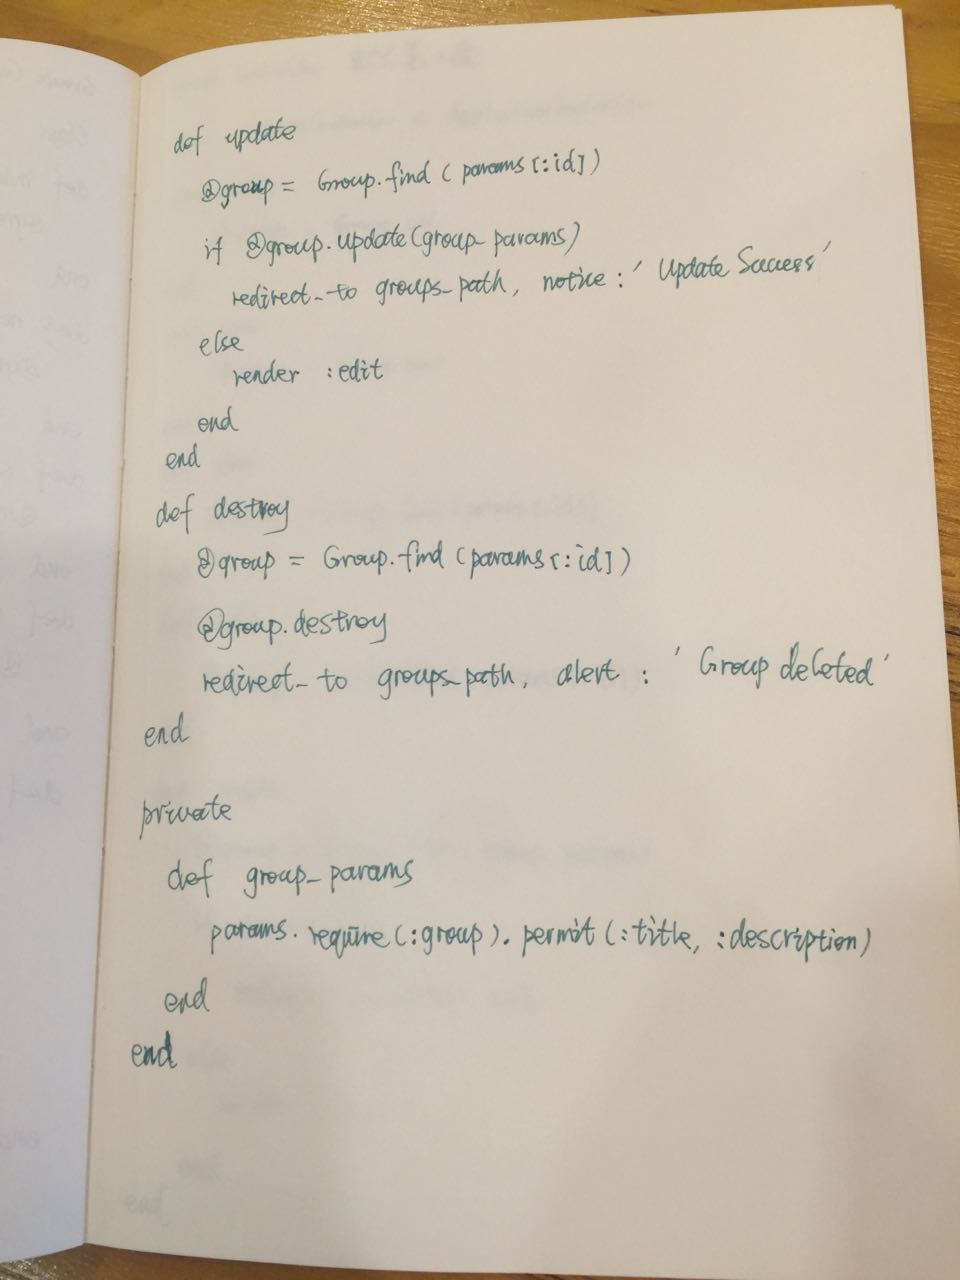 def update
@group = Group.find (params[:id])
if @group.update(group_params)
redirect_to groups_path, notice: 'Update Success'
else
render :edit
end
end
def destroy
@group = Group.find (params[:id])
@group.destroy
redirect_to groups_path, alert: 'Group deleted'
end
private
def group_params
params.require(:group).permit(:title, :description)
end
end